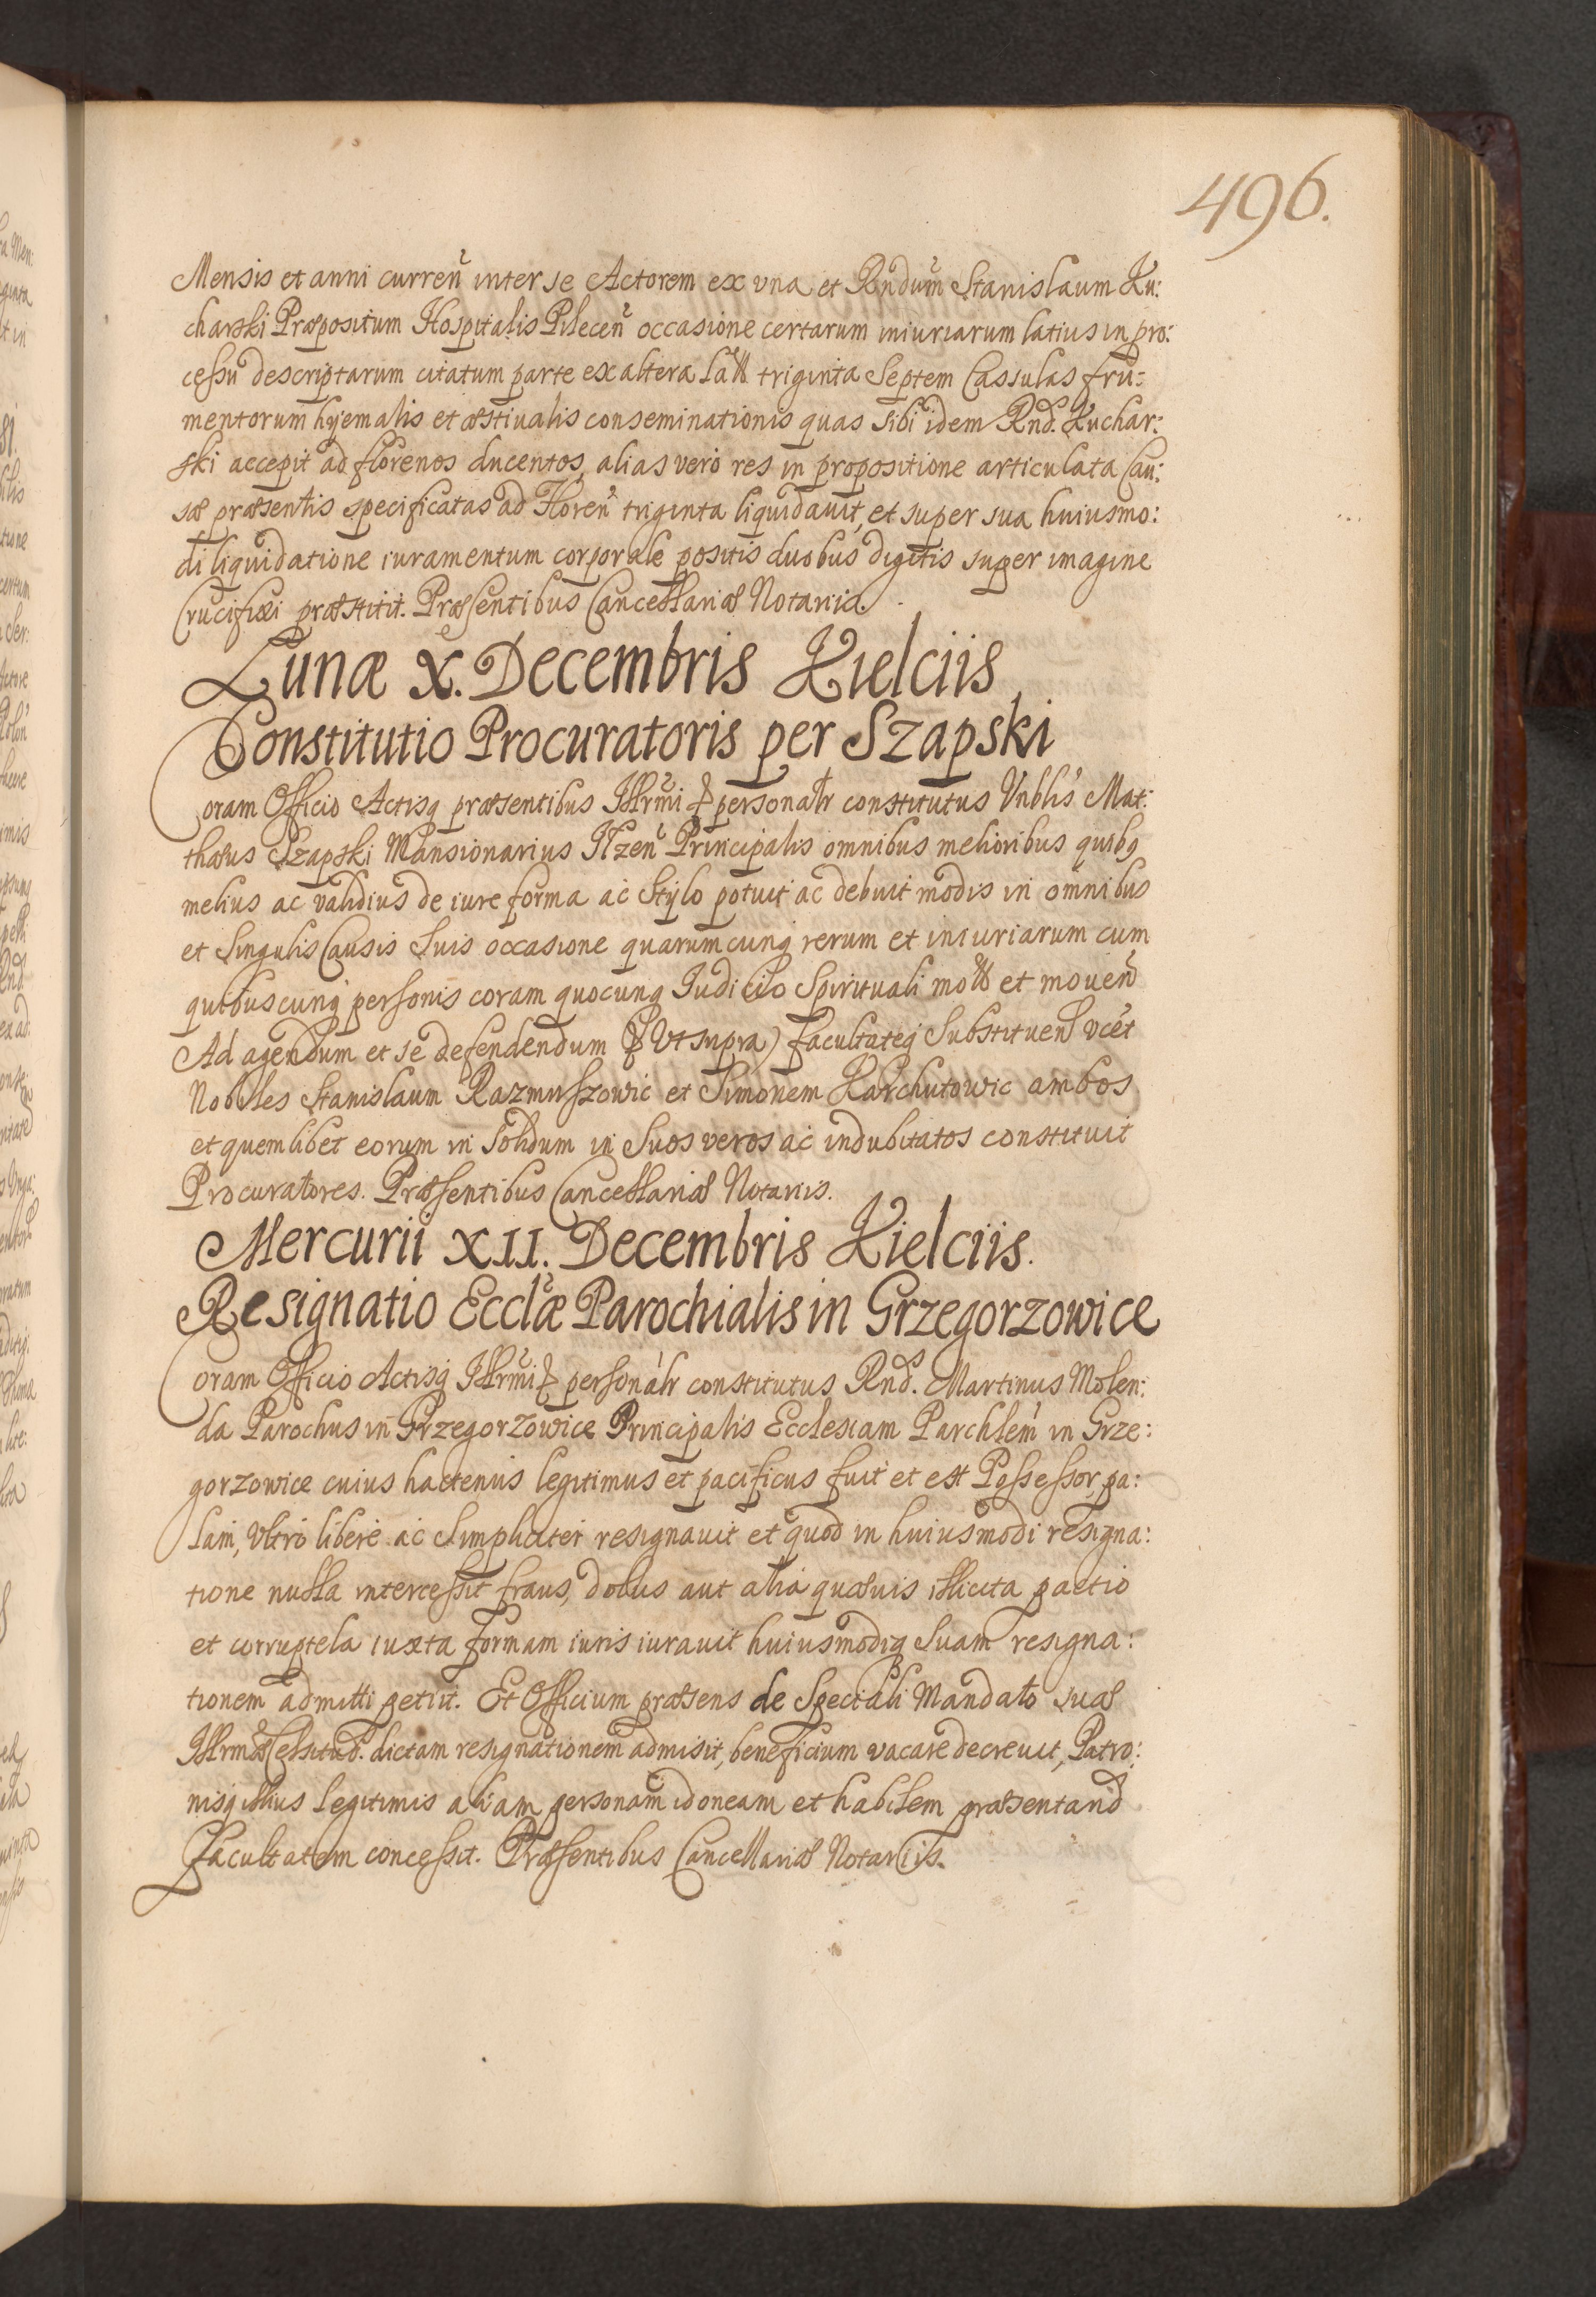 496.
Mensis et anni curren̄ inter se Actorem ex vna et Rndum̄ Stanislaum Ku:
charski Præpositum Hospitalis Pilecen̄ occasione certarum iniuriarum latius in pro:
cessu descriptarum citatum parte ex altera lãtt triginta Septem Cassulas fru:
mentorum hyemalis et æstiualis conseminationis quas sibi idem Rnd. Kuchar:
ski accepit ad florenos ducentos, alias vero res in propositione articulata Cau:
sæ præsentis specificatas ad Floren̄ triginta liquidauit, et super sua huiusmo:
di liquidatione iuramentum corporale positis duobus digitis super imagine
Crucifixi præstitit. Præsentibus Cancellariæ Notariis.
Lunæ X. Decembris Kielciis
Constitutio Procuratoris per Szapski
Coram Officio Actisq præsentibus Illrmi & personalr constitutus Vnblis Mat:
thæus Szapski Mansionarius Ilzen̄ Principalis omnibus melioribus quibq
melius ac validius de iure forma ac Stylo potuit ac debuit modis in omnibus
et Singulis Causis Suis occasione quarumcunq rerum et iniuriarum cum
quibuscunq personis coram quocunq Iudicio Spirituali mott et mouen̄d
Ad agendum et se defendendum & Vt supra) facultateq Substituen̄d vcēt
Nobiles Stanislaum Razmuszowic et Simonem Karchutowic ambos
et quemlibet eorum in Solidum in Suos veros ac indubitatos constituit
Procuratores. Præsentibus Cancellariæ Notariis.
Mercurii XII. Decembris Kielciis.
Resignatio Ecclæ Parochialis in Grzegorzowice
Coram Officio Actisq Illrmi & personalr constitutus Rnd. Martinus Molen:
da Parochus in Grzegorzowice Principalis Ecclesiam Parchlem in Grze:
gorzowice cuius hactenus legitimus et pacificus fuit et est Possessor, pa:
lam, Vltro libere ac Simpliciter resignauit et quod in huiusmodi resigna:
tione nulla intercessit fraus, dolus aut alia quæuis illicita pactio
et corruptela iuxta formam iuris iurauit huiusmodiq Suam resigna:
tionem admitti petiit. Et Officium præsens de Speciali Mandato suæ
Illrmæ Celsitud. dictam resignationem admisit, beneficium vacare decreuit, Patro:
nisq illius Legitimis aliam personam idoneam et habilem præsentand
facultatem concessit. Præsentibus Cancellariæ Notariis.